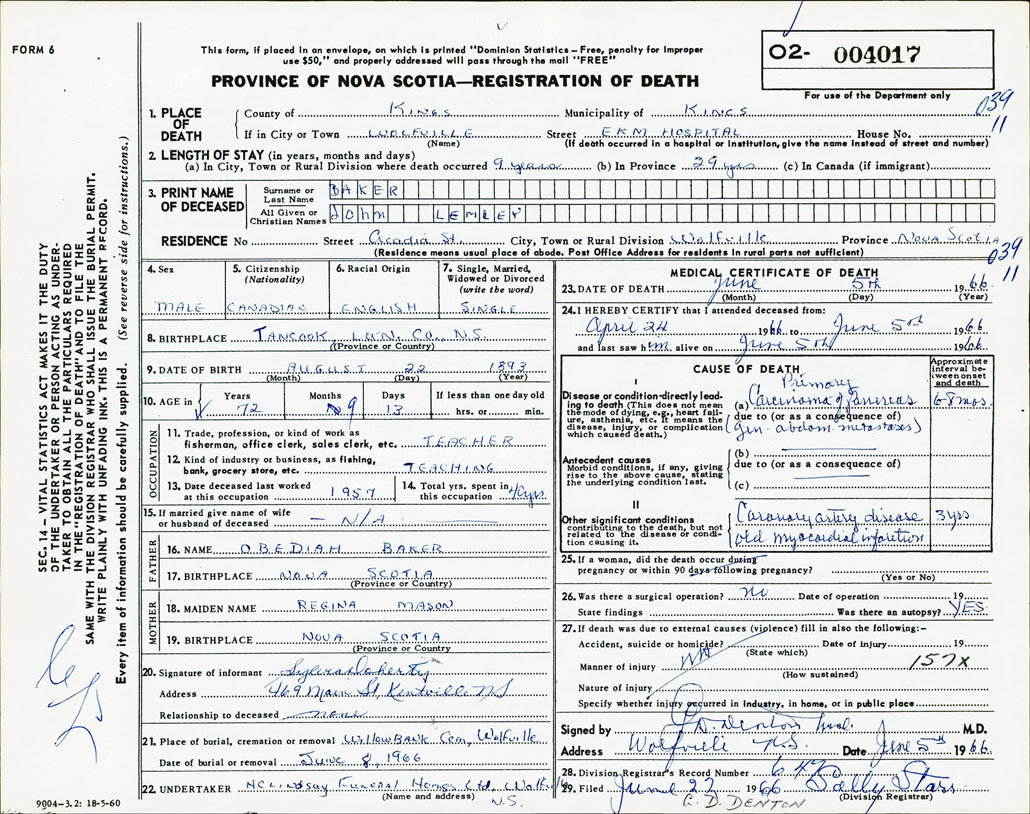 FORM 6
This form, if placed in an envelope, on which is printed "Dominion Statistics – Free, penalty for improper
use $50," and properly addressed will pass through the mail "FREE"
PROVINCE OF NOVA SCOTIA—REGISTRATION OF DEATH
O2- 004017
For use of the Department only
039
11
1. PLACE OF DEATH
County of KINGS Municipality of KINGS
If in City or Town WOLFVILLE Street EKM HOSPITAL House No.
(Name) (If death occurred in a hospital or institution, give the name instead of street and number)
2. LENGTH OF STAY (in years, months and days)
(a) In City, Town or Rural Division where death occurred 9 years (b) In Province 29 yrs (c) In Canada (if immigrant)
3. PRINT NAME OF DECEASED
Surname or Last Name BAKER
All Given or Christian Names John LEMLEY
RESIDENCE No Street Acadia St. City, Town or Rural Division Wolfville Province Nova Scotia
(Residence means usual place of abode. Post Office Address for residents in rural parts not sufficient)
039
11
4. Sex MALE
5. Citizenship (Nationality) CANADIAN
6. Racial Origin ENGLISH
7. Single, Married, Widowed or Divorced (write the word) SINGLE
8. BIRTHPLACE TANCOOK LUN. CO., N.S.
(Province or Country)
9. DATE OF BIRTH AUGUST 22 1893
(Month) (Day) (Year)
10. AGE in Years 72 Months 9 Days 13 If less than one day old hrs. or min.
OCCUPATION
11. Trade, profession, or kind of work as
fisherman, office clerk, sales clerk, etc. TEACHER
12. Kind of industry or business, as fishing,
bank, grocery store, etc. TEACHING
13. Date deceased last worked
at this occupation 1957
14. Total yrs. spent in
this occupation 40 yrs.
15. If married give name of wife
or husband of deceased – N/A
FATHER
16. NAME OBEDIAH BAKER
17. BIRTHPLACE NOVA SCOTIA
(Province or Country)
MOTHER
18. MAIDEN NAME REGINA MASON
19. BIRTHPLACE NOVA SCOTIA
(Province or Country
20. Signature of informant
Address 469 Main St, Kentville NS
Relationship to deceased none
21. Place of burial, cremation or removal WILLOWBANK Cem, Wolfville
Date of burial or removal June 8, 1966
22. UNDERTAKER Lindsay Funeral Homes Ltd, Wolfville
(Name and address) N.S.
9004–3.2: 18-5-60
MEDICAL CERTIFICATE OF DEATH
23. DATE OF DEATH June 5th 1966
(Month) (Day) (Year)
24. I HEREBY CERTIFY that I attended deceased from:
April 24 1966 to June 5th 1966
and last saw him alive on June 5th 1966
CAUSE OF DEATH
Approximate interval between onset and death
I
Disease or condition directly leading to death (This does not mean the mode of dying, e.g., heart failure, asthenia, etc. It means the disease, injury, or complication which caused death.)
Primary
(a) Carcinoma of pancreas 6-8 mos.
due to (or as a consequence of)
(Gen. abdom. metastases)
Antecedent causes
Morbid conditions, if any, giving rise to the above cause, stating the underlying condition last.
(b)
due to (or as a consequence of)
(c)
II
Other significant conditions
contributing to the death, but not related to the disease or condition causing it.
Coronary artery disease 3 yrs.
old myocardial infarction
25. If a woman, did the death occur during
pregnancy or within 90 days following pregnancy?
(Yes or No)
26. Was there a surgical operation? No Date of operation 19
State findings Was there an autopsy? YES
27. If death was due to external causes (violence) fill in also the following:–
Accident, suicide or homicide? Date of injury 19
(State which)
Manner of injury 157X
(How sustained)
Nature of injury
Specify whether injury occurred in industry, in home, or in public place
Signed by G.D. Denton M.D.
Address Wolfville N.S. Date June 5th 1966
28. Division Registrar's Record Number
29. Filed June 27 1966 Sally Starr
(Division Registrar)
G. D. DENTON
SEC. 14 – VITAL STATISTICS ACT MAKES IT THE DUTY
OF THE UNDERTAKER OR PERSON ACTING AS UNDER-
TAKER TO OBTAIN ALL THE PARTICULARS REQUIRED
IN THE "REGISTRATION OF DEATH" AND TO FILE THE
SAME WITH THE DIVISION REGISTRAR WHO SHALL ISSUE THE BURIAL PERMIT.
WRITE PLAINLY WITH UNFADING INK. THIS IS A PERMANENT RECORD.
Every item of information should be carefully supplied. (See reverse side for instructions.)